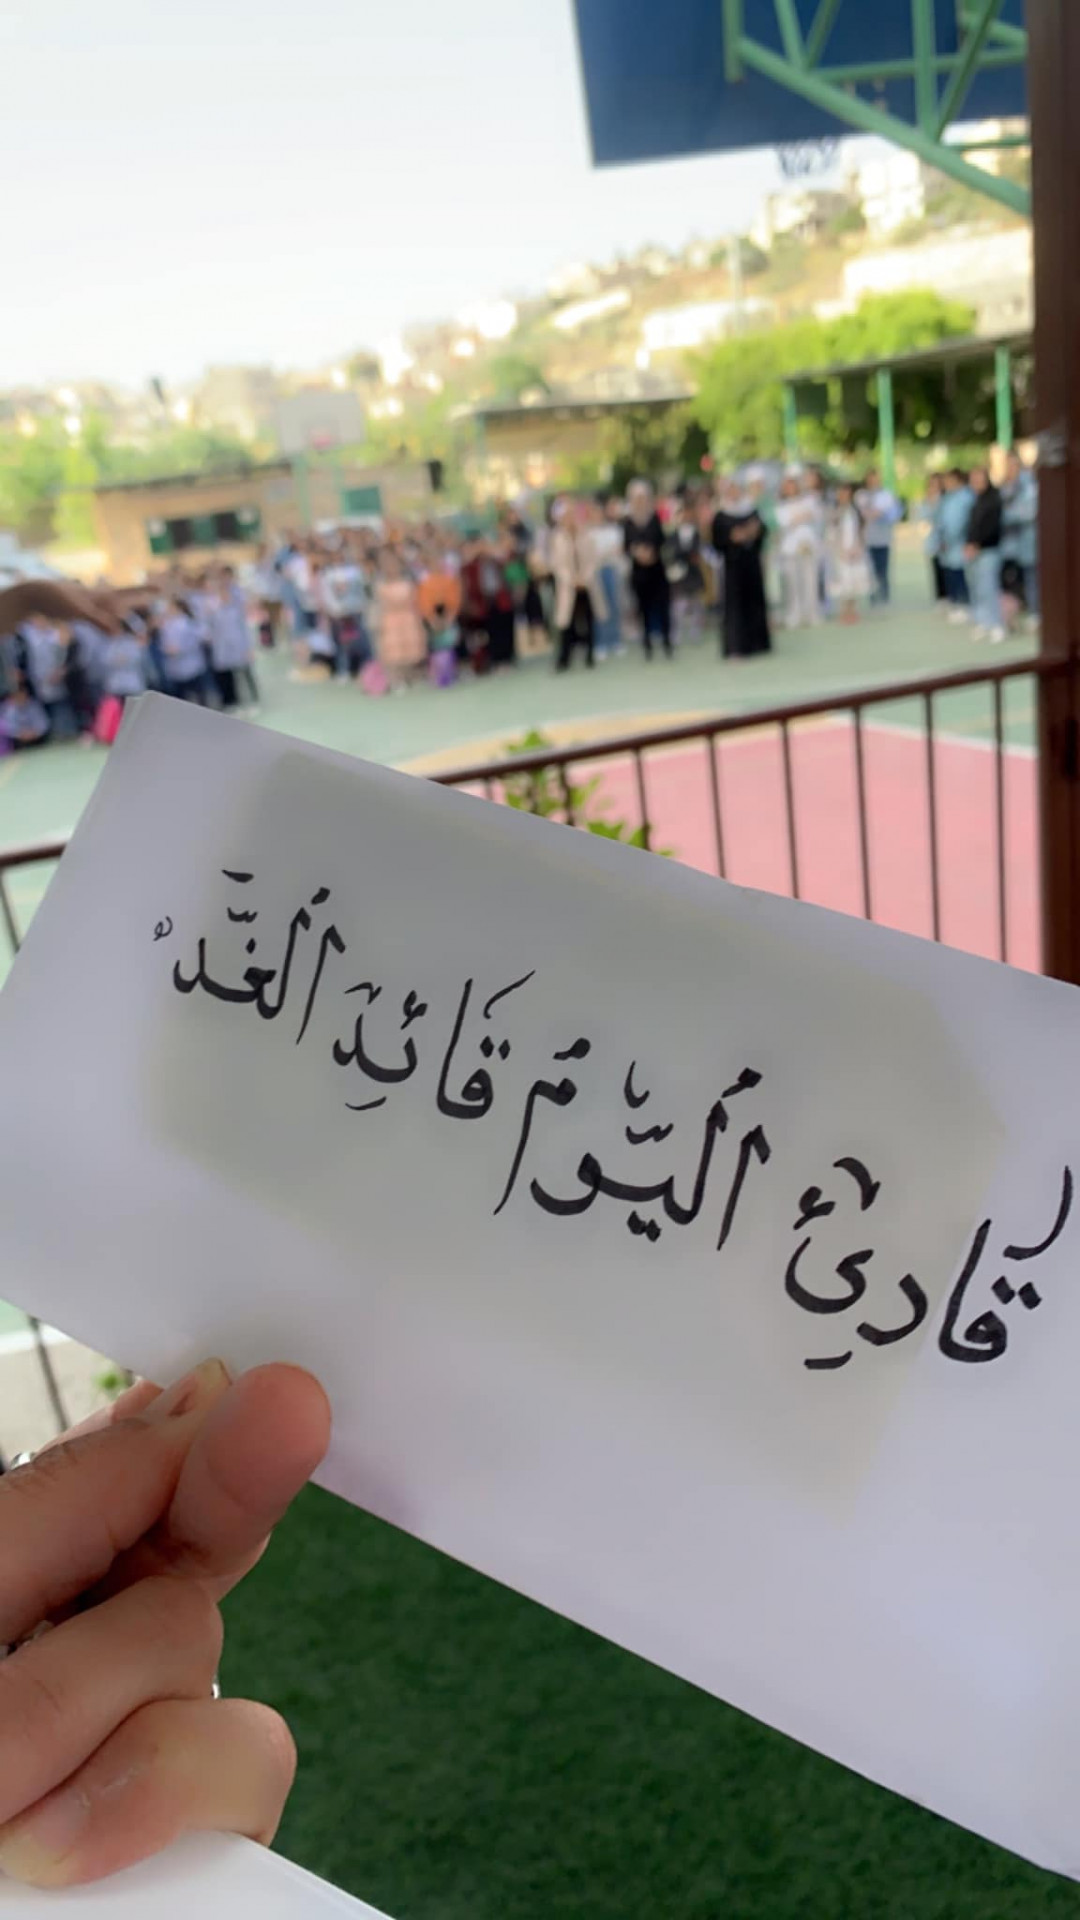 قَادِئ اُليَّومُ قَائِد اُلغَّد